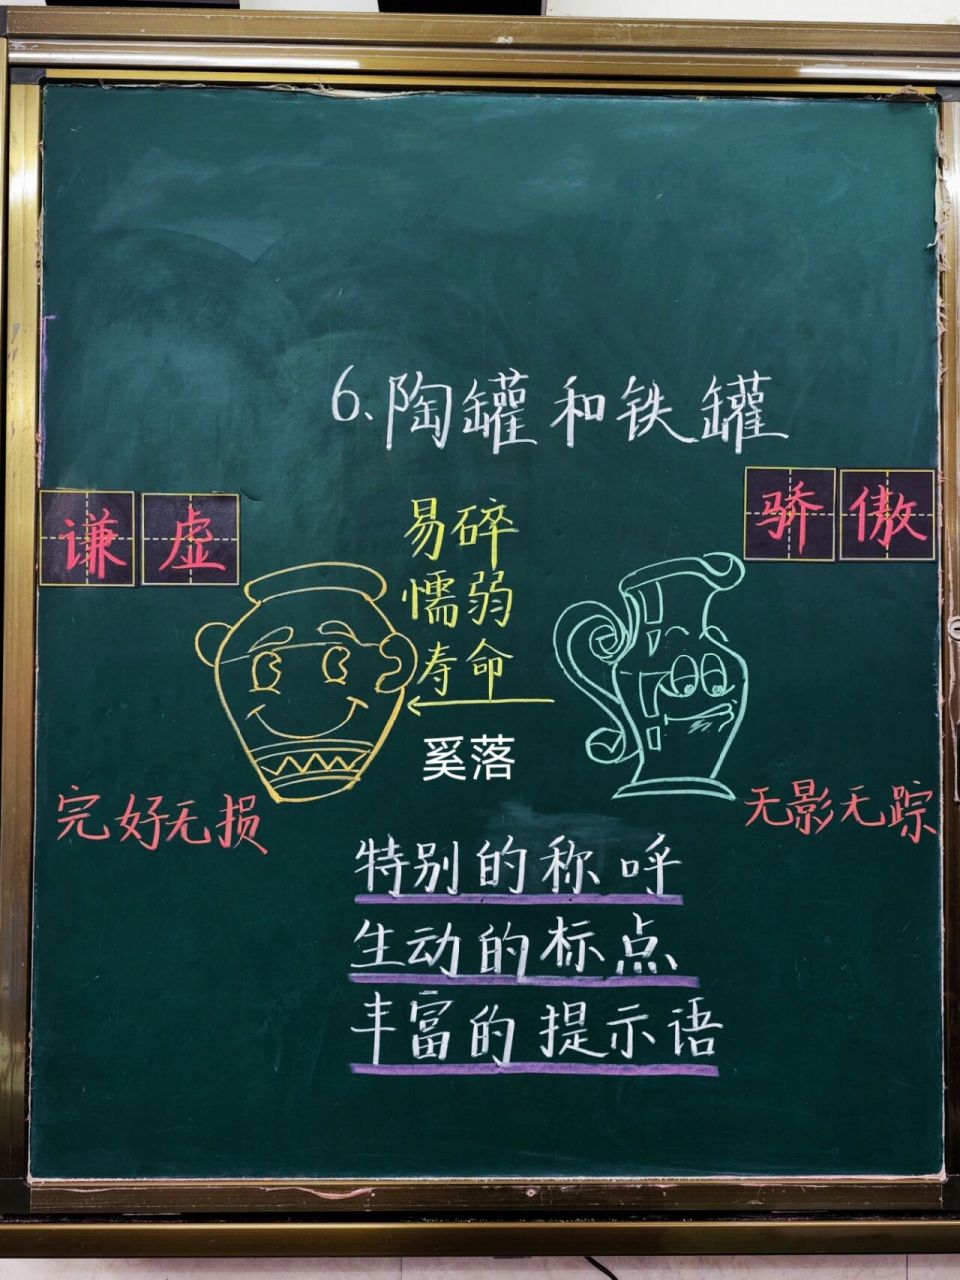 6.陶罐和铁罐
谦虚
骄傲
易碎
懦弱
寿命
奚落
完好无损
无影无踪
特别的称呼
生动的标点
丰富的提示语